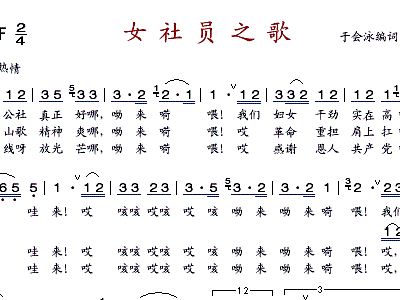 F 2/4 女社员之歌 于会泳编词
热情
12 | 35 533 | 3·2 12 | 2·1 | 1 12 | 332 12 | 35
公社 真正 好哪, 呦 来 嗬 喂! 我们 妇女 干劲 实在 高
山歌 精神 爽哪, 呦 来 嗬 喂! 哎 革命 重担 肩上 扛
线呀 放光 芒哪, 呦 来 嗬 喂! 哎 感谢 恩人 共产 党
65 5 | 1· 12 | 33 33 | 3·5 2 | 3·2 12 | 1 12
哇 来! 哎 咳咳 哎咳 哎 呦 来 呦 来嗬 喂! 我们
哇 来! 哎 咳咳 哎咳 哎 呦 来 呦 来嗬 喂! 哎
哇 来! 哎 咳咳 哎咳 哎 呦 来 呦 来嗬 喂! 哎
12 3